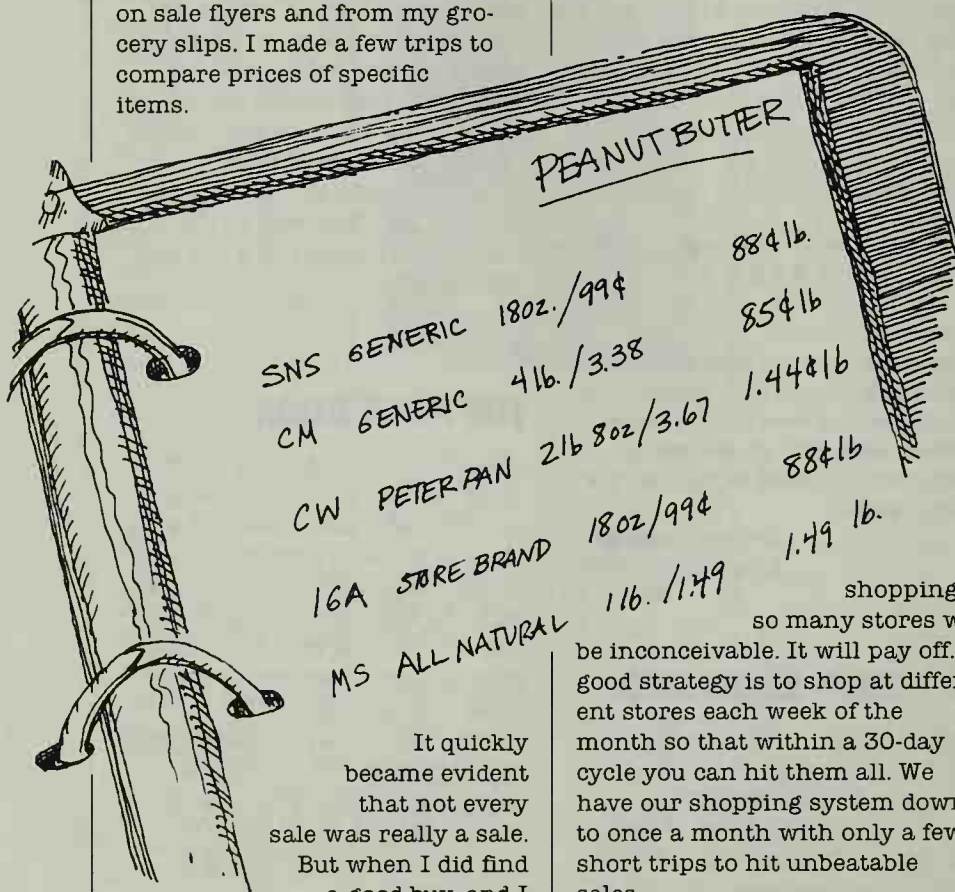 on sale flyers and from my gro-
cery slips. I made a few trips to
compare prices of specific
items.
PEANUT BUTTER
SNS GENERIC 18oz./99¢ 88¢ lb.
CM GENERIC 4 lb./3.38 85¢ lb
CW PETER PAN 2lb 8oz/3.67 1.44¢ lb
IGA STORE BRAND 18oz/99¢ 88¢ lb
MS ALL NATURAL 1 lb./1.49 1.49 lb.
It quickly
became evident
that not every
sale was really a sale.
But when I did find
a good buy, and I
shopping
so many stores
be inconceivable. It will pay off.
good strategy is to shop at differ-
ent stores each week of the
month so that within a 30-day
cycle you can hit them all. We
have our shopping system down
to once a month with only a few
short trips to hit unbeatable
sales.